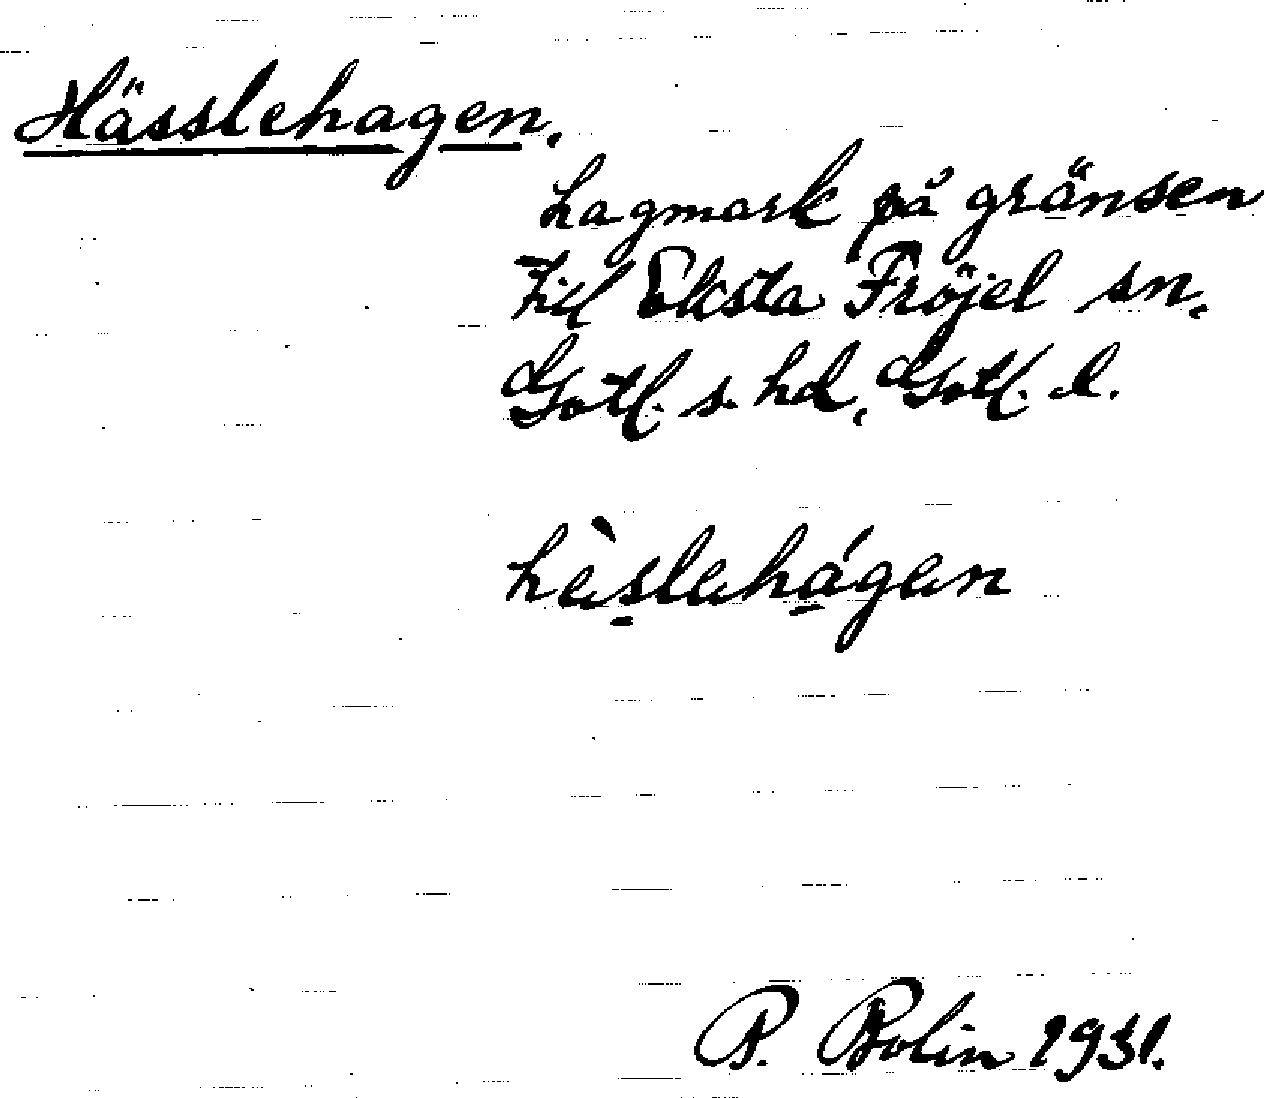 Hässlehagen.
hagmark på gränsen
till Eksta Fröjel sn.
Gotl. s. hd, Gotl. l.
hàslahágan
P. Bolin 1931.